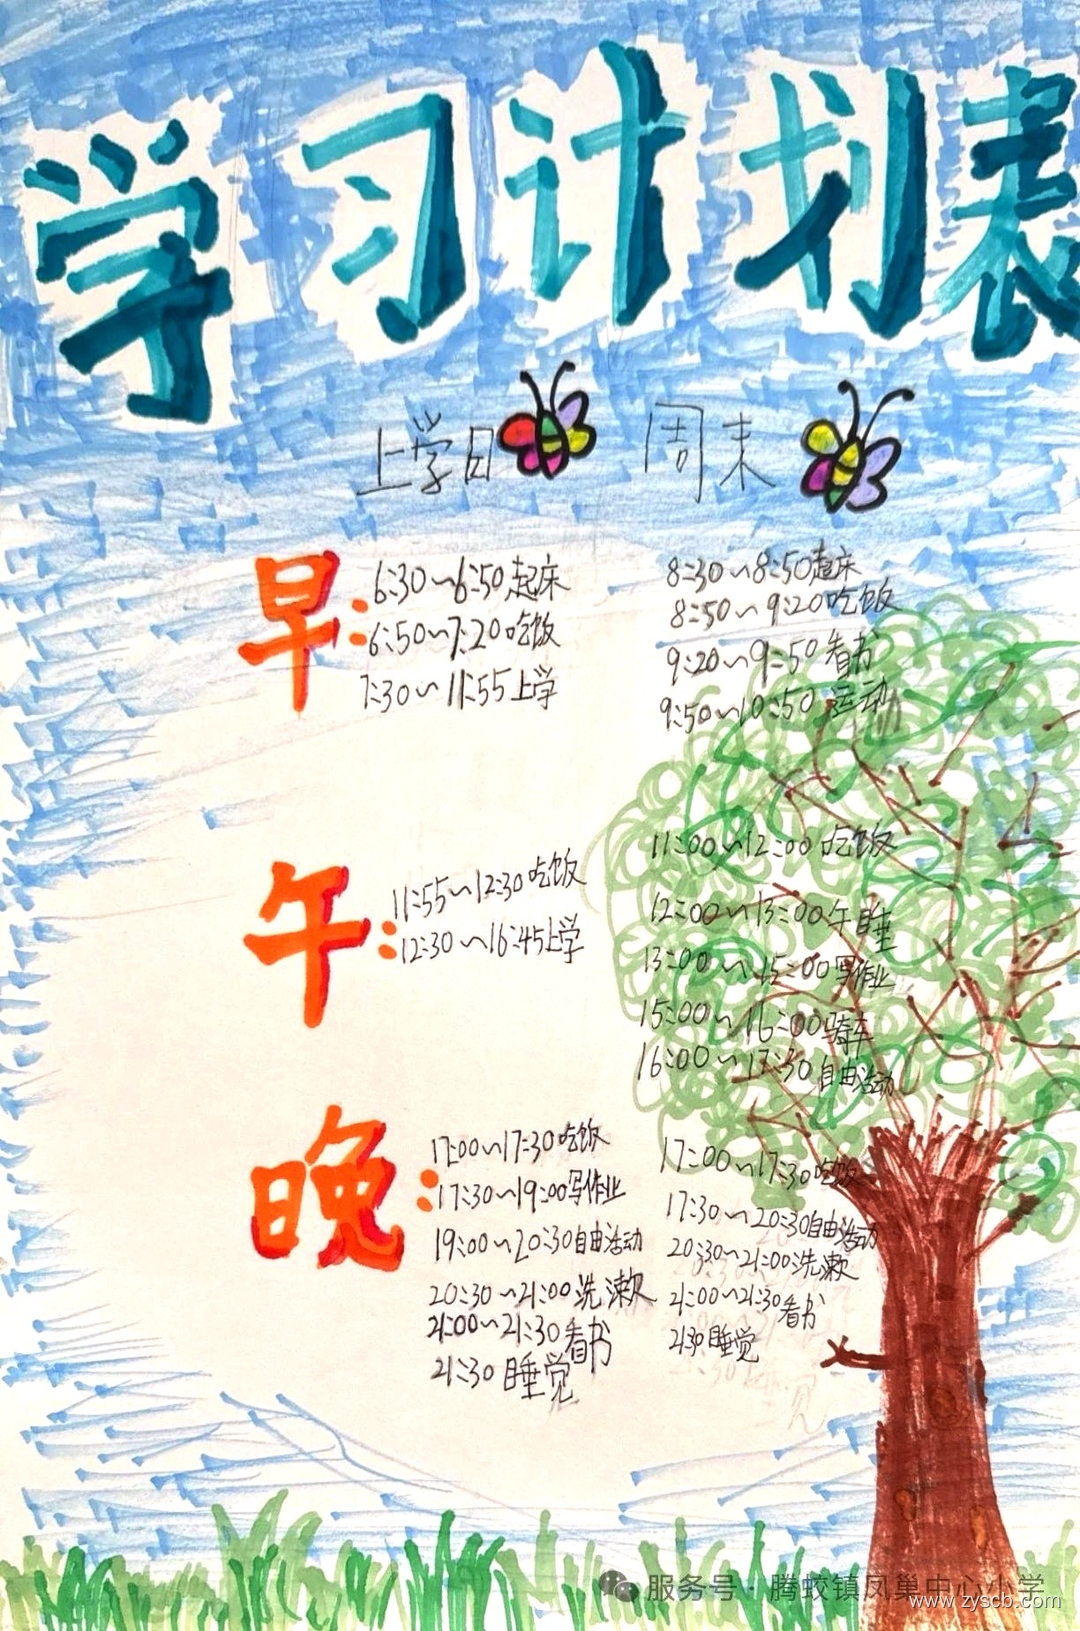 学习计划表
上学日 周末
早:
6:30~6:50起床
6:50~7:20吃饭
7:30~11:55上学
8:30~8:50起床
8:50~9:20吃饭
9:20~9:50看书
9:50~10:50运动
午:
11:55~12:30吃饭
12:30~16:45上学
11:00~12:00吃饭
12:00~13:00午睡
13:00~15:00写作业
15:00~16:00骑车
16:00~17:30自由活动
晚:
17:00~17:30吃饭
17:30~19:00写作业
19:00~20:30自由活动
20:30~21:00洗漱
21:00~21:30看书
21:30睡觉
17:00~17:30吃饭
17:30~20:30自由活动
20:30~21:00洗漱
21:00~21:30看书
21:30睡觉
服务号·腾蛟镇凤巢中心小学
www.zyscb.com